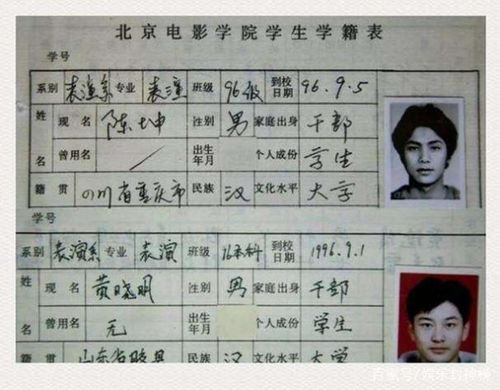 北京电影学院学生学籍表
学号
系别 表演系 专业 表演 班级 96级 到校日期 96.9.5
姓名 现名 陈坤 性别 男 家庭出身 干部
曾用名 / 出生年月 个人成份 学生
籍贯 四川省重庆市 民族 汉 文化水平 大学
学号
系别 表演系 专业 表演 班级 96本科 到校日期 1996.9.1
姓名 现名 黄晓明 性别 男 家庭出身 干部
曾用名 无 出生年月 个人成份 学生
籍贯 山东省 民族 汉 文化水平 大学